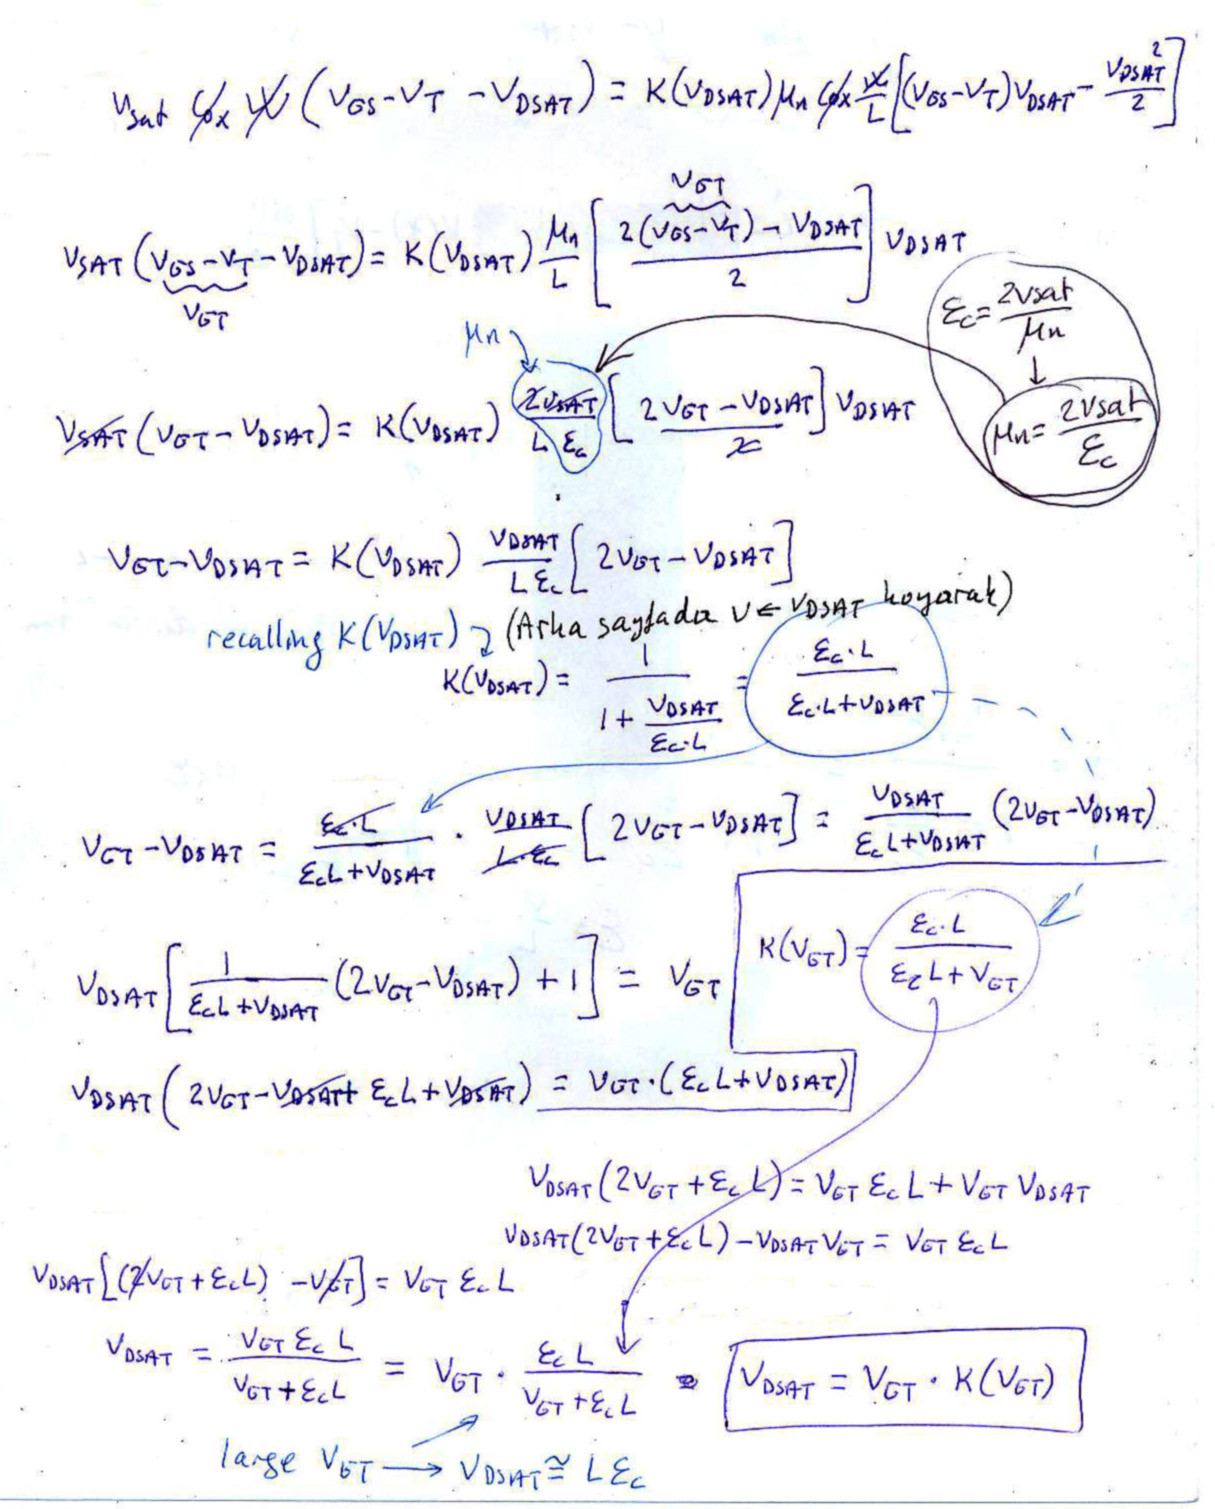 υsat Cox W (VGS-VT -VDSAT) = K(VDSAT) μn Cox W/L [(VGS-VT)VDSAT - VDSAT²/2]
VSAT (VGS-VT-VDSAT) = K(VDSAT) μn/L [2(VGS-VT) - VDSAT / 2] VDSAT
VGT
VGT
Ec = 2vsat/μn
↓
μn = 2vsat/Ec
μn
VSAT (VGT - VDSAT) = K(VDSAT) 2VSAT/L Ec [2VGT - VDSAT / 2] VDSAT
VGT-VDSAT = K(VDSAT) VDSAT/L Ec [2VGT - VDSAT]
recalling K(VDSAT) (Arka sayfada V ← VDSAT koyarak)
K(VDSAT) = 1 / (1 + VDSAT/Ec·L) = Ec·L / Ec·L+VDSAT
VGT - VDSAT = Ec·L / EcL+VDSAT · VDSAT / L·Ec [2VGT - VDSAT] = VDSAT / EcL+VDSAT (2VGT-VDSAT)
VDSAT [1 / EcL+VDSAT (2VGT-VDSAT) + 1] = VGT
K(VGT) = Ec·L / EcL+VGT
VDSAT (2VGT-VDSAT+ EcL+VDSAT) = VGT·(EcL+VDSAT)
VDSAT (2VGT+Ec L) = VGT Ec L + VGT VDSAT
VDSAT(2VGT+EcL) - VDSAT VGT = VGT Ec L
VDSAT[(2VGT+EcL) - VGT] = VGT Ec L
VDSAT = VGT Ec L / VGT+EcL = VGT · Ec L / VGT+EcL = VDSAT = VGT · K(VGT)
large VGT → VDSAT ≅ L Ec